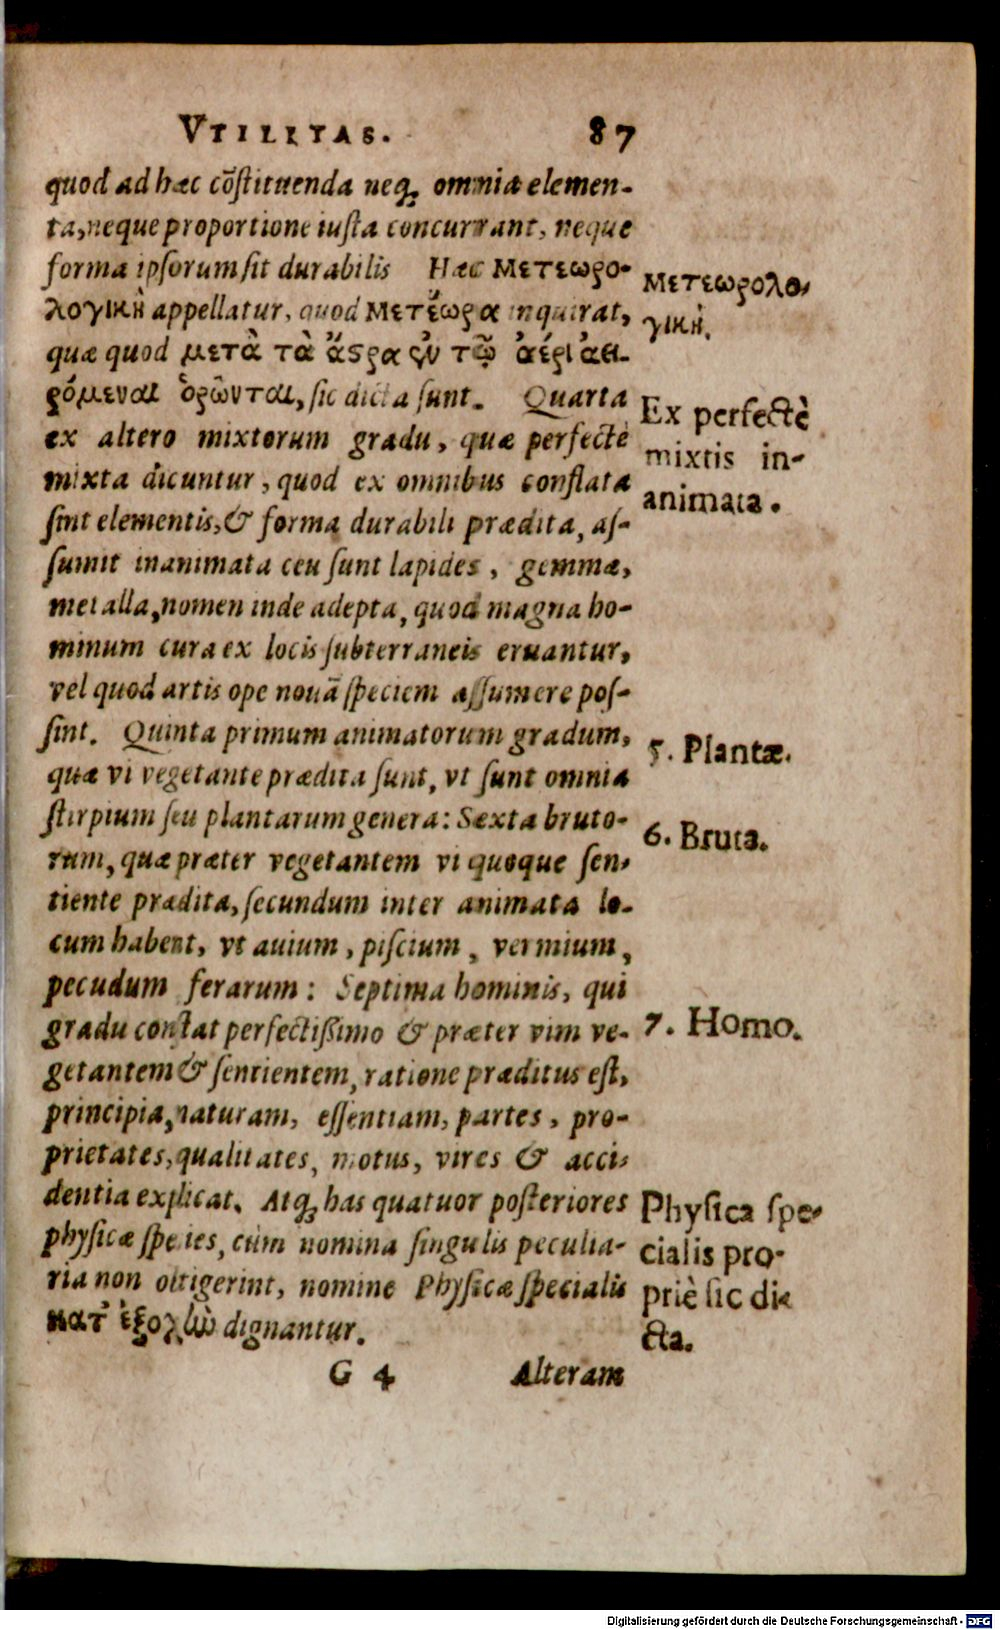 VTILITAS. 87
quod ad hæc cōstituenda neq́; omnia elemen-
ta, neque proportione iusta concurrant, neque
forma ipsorum sit durabilis Hæc μετεωρο-
λογικὴ appellatur, quod μετέωρα inquirat,
quæ quod μετὰ τὰ ἄςρα ἐν τῷ ἀέρι ἀει-
ρόμεναι ὁρῶνται, sic dicta sunt. Quarta
ex altero mixtorum gradu, quæ perfectè
mixta dicuntur, quod ex omnibus conflata
sint elementis, & forma durabili prædita, as-
sumit inanimata ceu sunt lapides, gemmæ,
metalla, nomen inde adepta, quod magna ho-
minum cura ex locis subterraneis eruantur,
vel quod artis ope nouā speciem assumere pos-
sint. Quinta primum animatorum gradum,
quæ vi vegetante prædita sunt, vt sunt omnia
stirpium seu plantarum genera: Sexta bruto-
rum, quæ præter vegetantem vi quoque sen-
tiente prædita, secundum inter animata lo-
cum habent, vt auium, piscium, vermium,
pecudum ferarum: Septima hominis, qui
gradu constat perfectissimo & præter vim ve-
getantem & sentientem, ratione præditus est,
principia, naturam, essentiam, partes, pro-
prietates, qualitates, motus, vires & acci-
dentia explicat. Atq́; has quatuor posteriores
physicæ species, cùm nomina singulis peculia-
ria non obtigerint, nomine Physicæ specialis
κατ' ἐξοχὴν dignantur.
G 4 Alteram
Μετεωρολο-
γικὴ.
Ex perfectè
mixtis in-
animata.
5. Plantæ.
6. Bruta.
7. Homo.
Physica spe-
cialis pro-
priè sic di-
cta.
Digitalisierung gefördert durch die Deutsche Forschungsgemeinschaft - DFG